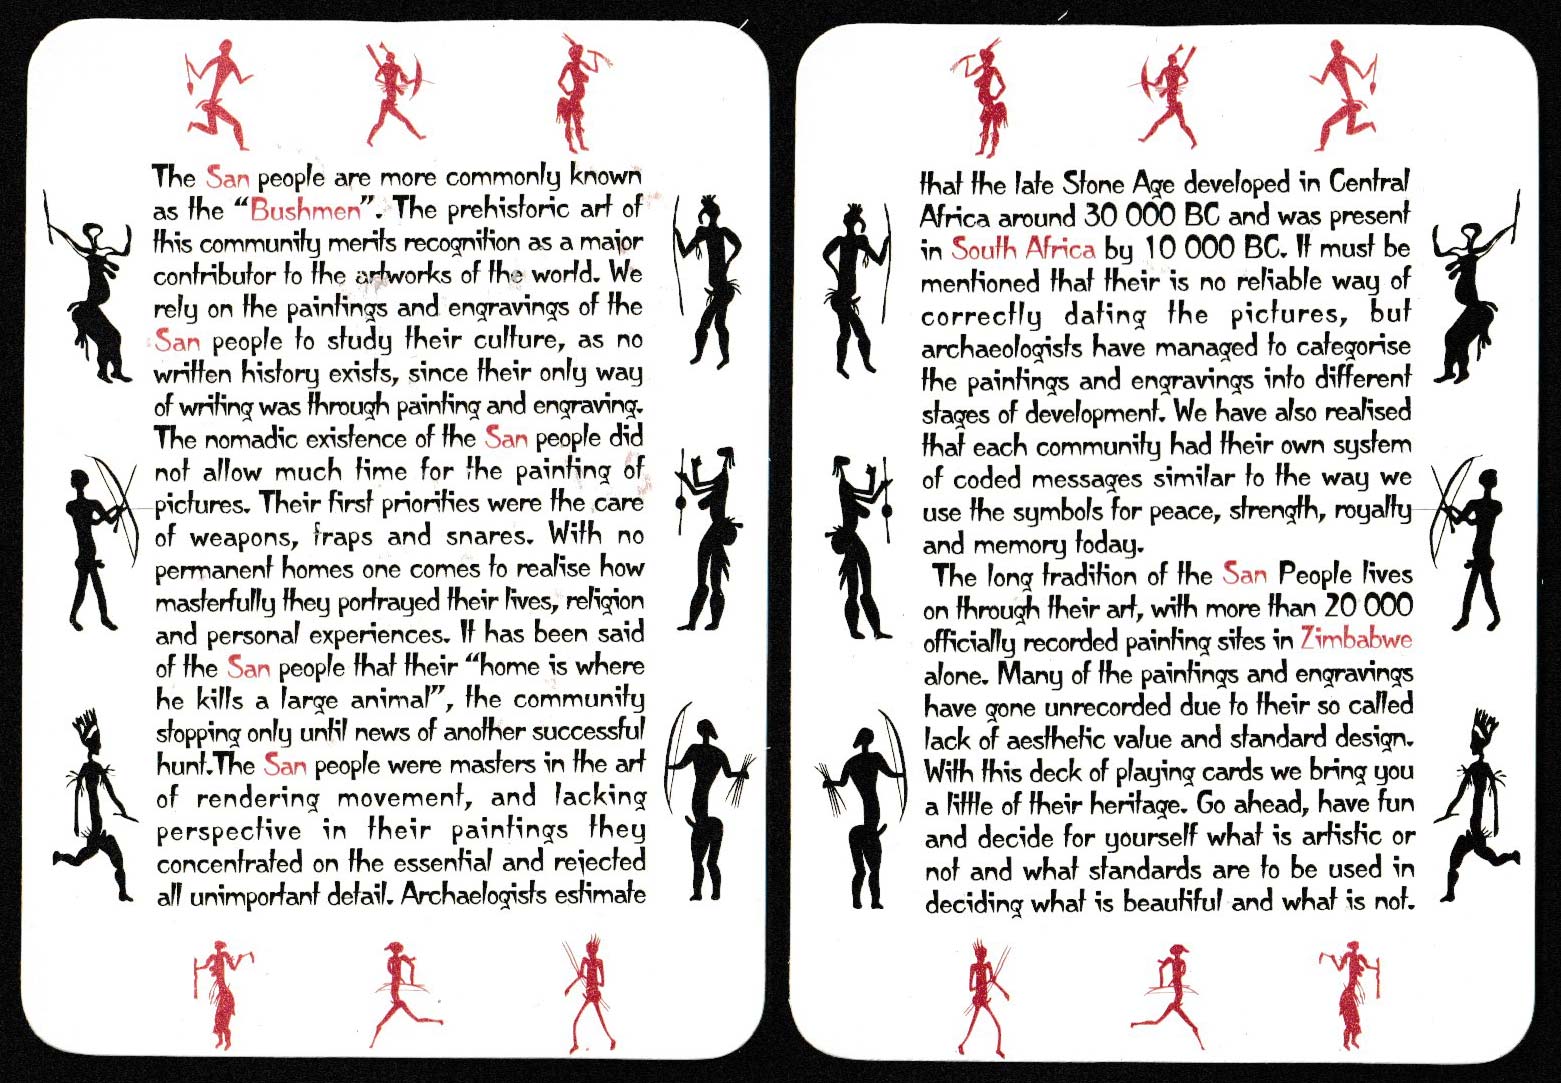 The San people are more commonly known
as the “Bushmen”. The prehistoric art of
this community merits recognition as a major
contributor to the artworks of the world. We
rely on the paintings and engravings of the
San people to study their culture, as no
written history exists, since their only way
of writing was through painting and engraving.
The nomadic existence of the San people did
not allow much time for the painting of
pictures. Their first priorities were the care
of weapons, traps and snares. With no
permanent homes one comes to realise how
masterfully they portrayed their lives, religion
and personal experiences. It has been said
of the San people that their “home is where
he kills a large animal”, the community
stopping only until news of another successful
hunt.The San people were masters in the art
of rendering movement, and lacking
perspective in their paintings they
concentrated on the essential and rejected
all unimportant detail. Archaelogists estimate
that the late Stone Age developed in Central
Africa around 30 000 BC and was present
in South Africa by 10 000 BC. It must be
mentioned that their is no reliable way of
correctly dating the pictures, but
archaeologists have managed to categorise
the paintings and engravings into different
stages of development. We have also realised
that each community had their own system
of coded messages similar to the way we
use the symbols for peace, strength, royalty
and memory today.
The long tradition of the San People lives
on through their art, with more than 20 000
officially recorded painting sites in Zimbabwe
alone. Many of the paintings and engravings
have gone unrecorded due to their so called
lack of aesthetic value and standard design.
With this deck of playing cards we bring you
a little of their heritage. Go ahead, have fun
and decide for yourself what is artistic or
not and what standards are to be used in
deciding what is beautiful and what is not.